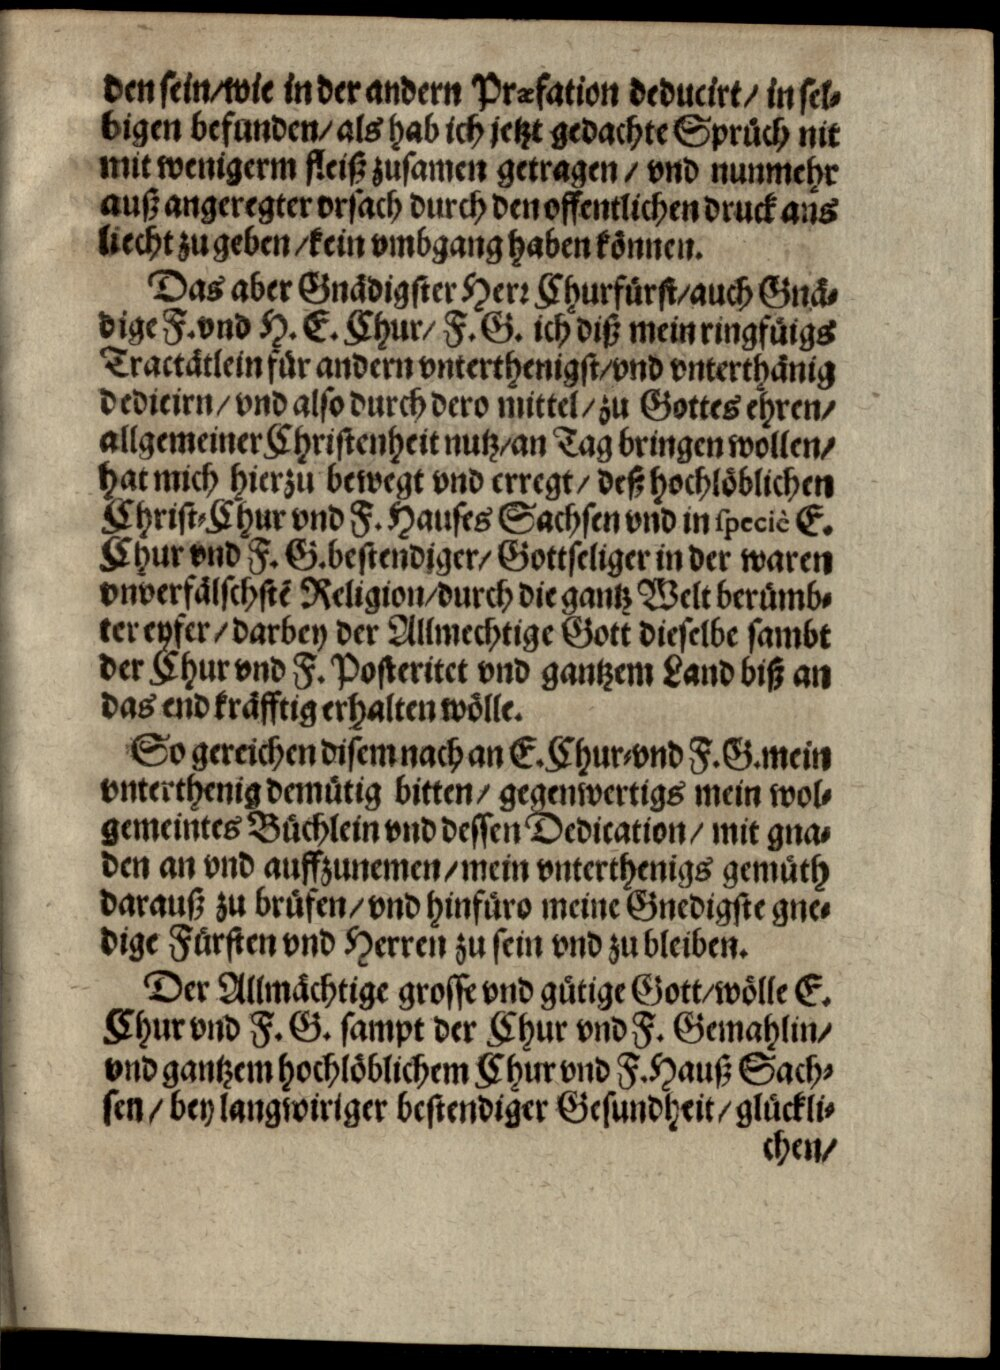 den sein/wie in der andern Præfation deducirt/ in sel-
bigen befunden/ als hab ich jetzt gedachte Sprüch nit
mit wenigerm fleiß zusamen getragen / vnd nunmehr
auß angeregter vrsach durch den offentlichen druck ans
liecht zu geben /kein vmbgang haben können.
Das aber Gnädigster Herr Churfürst/auch Gnä-
dige F. vnd H. E. Chur/ F. G. ich diß mein ringfüigs
Tractätlein für andern vnterthenigst/vnd vnterthänig
dedicirn/ vnd also durch dero mittel/ zu Gottes ehren/
allgemeiner Christenheit nutz/an Tag bringen wollen/
hat mich hierzu bewegt vnd erregt/ deß hochlöblichen
Christ-Chur vnd F. Hauses Sachsen vnd in speciè E.
Chur vnd F. G. bestendiger/ Gottseliger in der waren
vnverfälschstē Religion/durch die gantz Welt berümb-
ter eyfer/ darbey der Allmechtige Gott dieselbe sambt
der Chur vnd F. Posteritet vnd gantzem Land biß an
das end kräfftig erhalten wölle.
So gereichen disem nach an E. Chur-vnd F. G. mein
vnterthenig demütig bitten/ gegenwertigs mein wol-
gemeintes Büchlein vnd dessen Dedication/ mit gna-
den an vnd auffzunemen/mein vnterthenigs gemüth
darauß zu brüfen/vnd hinfüro meine Gnedigste gne-
dige Fürsten vnd Herren zu sein vnd zu bleiben.
Der Allmächtige grosse vnd gütige Gott/wölle E.
Chur vnd F. G. sampt der Chur vnd F. Gemahlin/
vnd gantzem hochlöblichem Chur vnd F. Hauß Sach-
sen/ bey langwiriger bestendiger Gesundheit/ glückli-
chen/